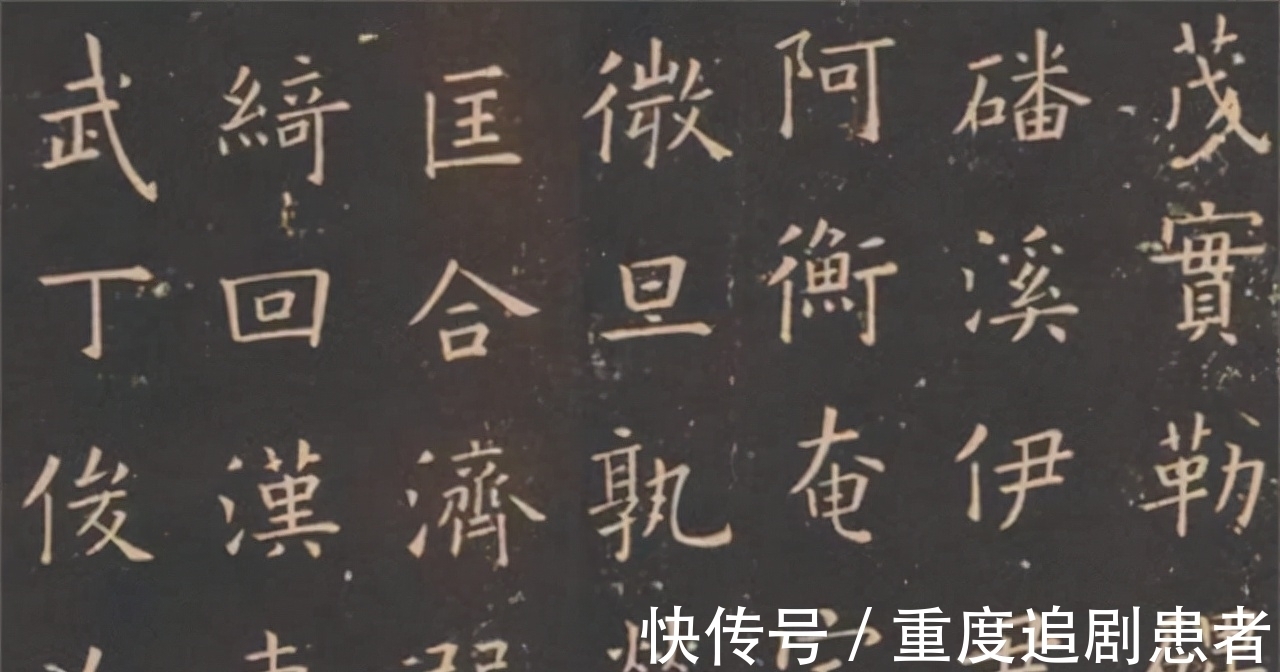 茂實勒
磻溪伊
阿衡奄
微旦孰
匡合濟
綺回漢
武丁俊
快传号 / 重度追剧患者